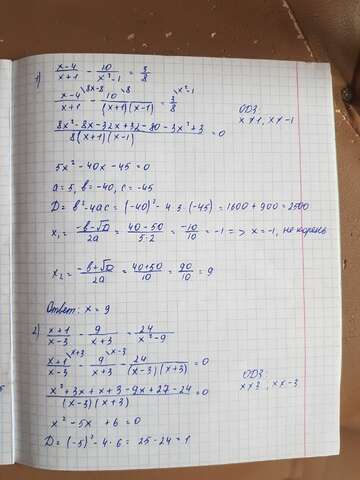 1) (x-4)/(x+1) - 10/(x²-1) = 3/8
(x-4)/(x+1) \8x-8 - 10/((x+1)(x-1)) \8 = 3/8 \x²-1
ОДЗ
x≠1, x≠-1
(8x²-8x-32x+32-80-3x²+3)/(8(x+1)(x-1)) = 0
5x²-40x-45=0
a=5, b=-40, c=-45
D=b²-4ac=(-40)²-4·5·(-45)=1600+900=2500
x₁=(-b-√D)/2a=(40-50)/(5·2)=-10/10=-1 => x=-1, не корень
x₂=(-b+√D)/2a=(40+50)/10=90/10=9
Ответ: x=9
2) (x+1)/(x-3) - 9/(x+3) = 24/(x²-9)
(x+1)/(x-3) \x+3 - 9/(x+3) \x-3 - 24/((x-3)(x+3)) = 0
ОДЗ:
x≠3, x≠-3
(x²+3x+x+3-9x+27-24)/((x-3)(x+3)) = 0
x²-5x+6=0
D=(-5)²-4·6=25-24=1